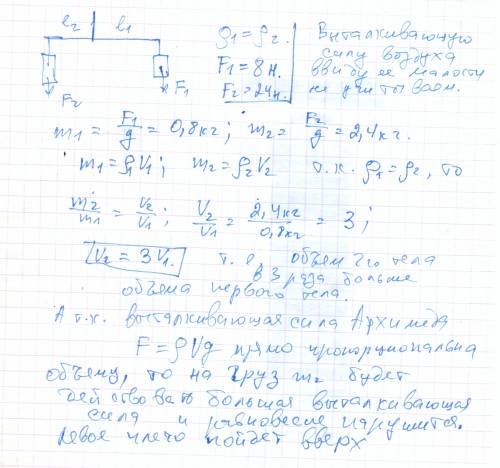 l₂ l₁
F₂ F₁
ρ₁ = ρ₂.
F₁ = 8 н.
F₂ = 24 н.
Выталкивающую
силу воздуха
ввиду ее малости
не учитываем.
m₁ = F₁/g = 0,8 кг; m₂ = F₂/g = 2,4 кг.
m₁ = ρ₁V₁; m₂ = ρ₂V₂ т.к. ρ₁ = ρ₂, то
m₂/m₁ = V₂/V₁; V₂/V₁ = 2,4 кг/0,8 кг = 3;
V₂ = 3V₁. т. е. объем 2го тела
в 3 раза больше
объема первого тела.
А т.к. выталкивающая сила Архимеда
F = ρVg прямо пропорциональна
объему, то на груз m₂ будет
действовать большая выталкивающая
сила и равновесие нарушится.
Левое плечо пойдет вверх